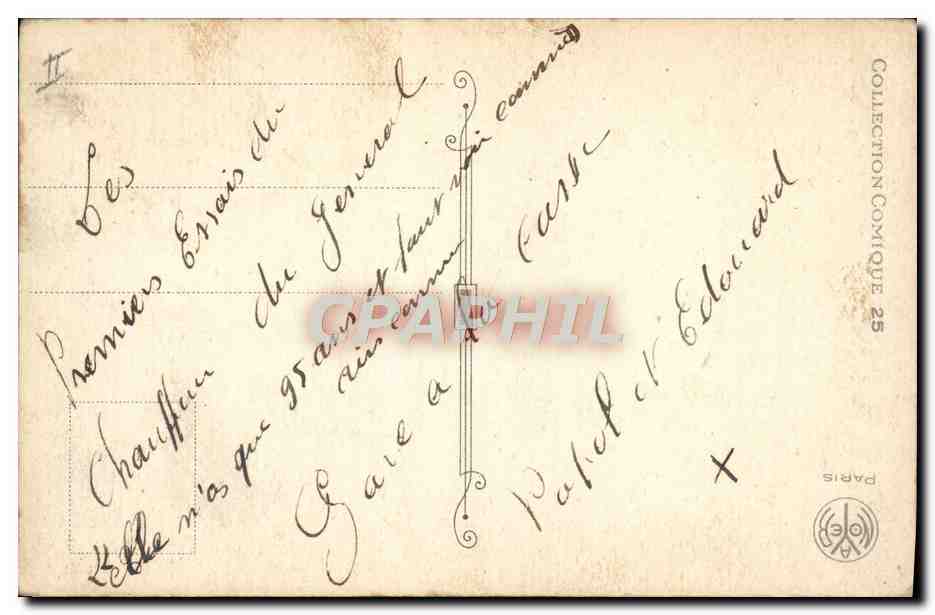 II
Les
Premiers Essais du
Chauffeur du General
Elle n'as que 95 ans et faut voir comme
Gare a la casse
Robert d'Edouard
+
COLLECTION COMIQUE 25
PARIS
CPAPHIL